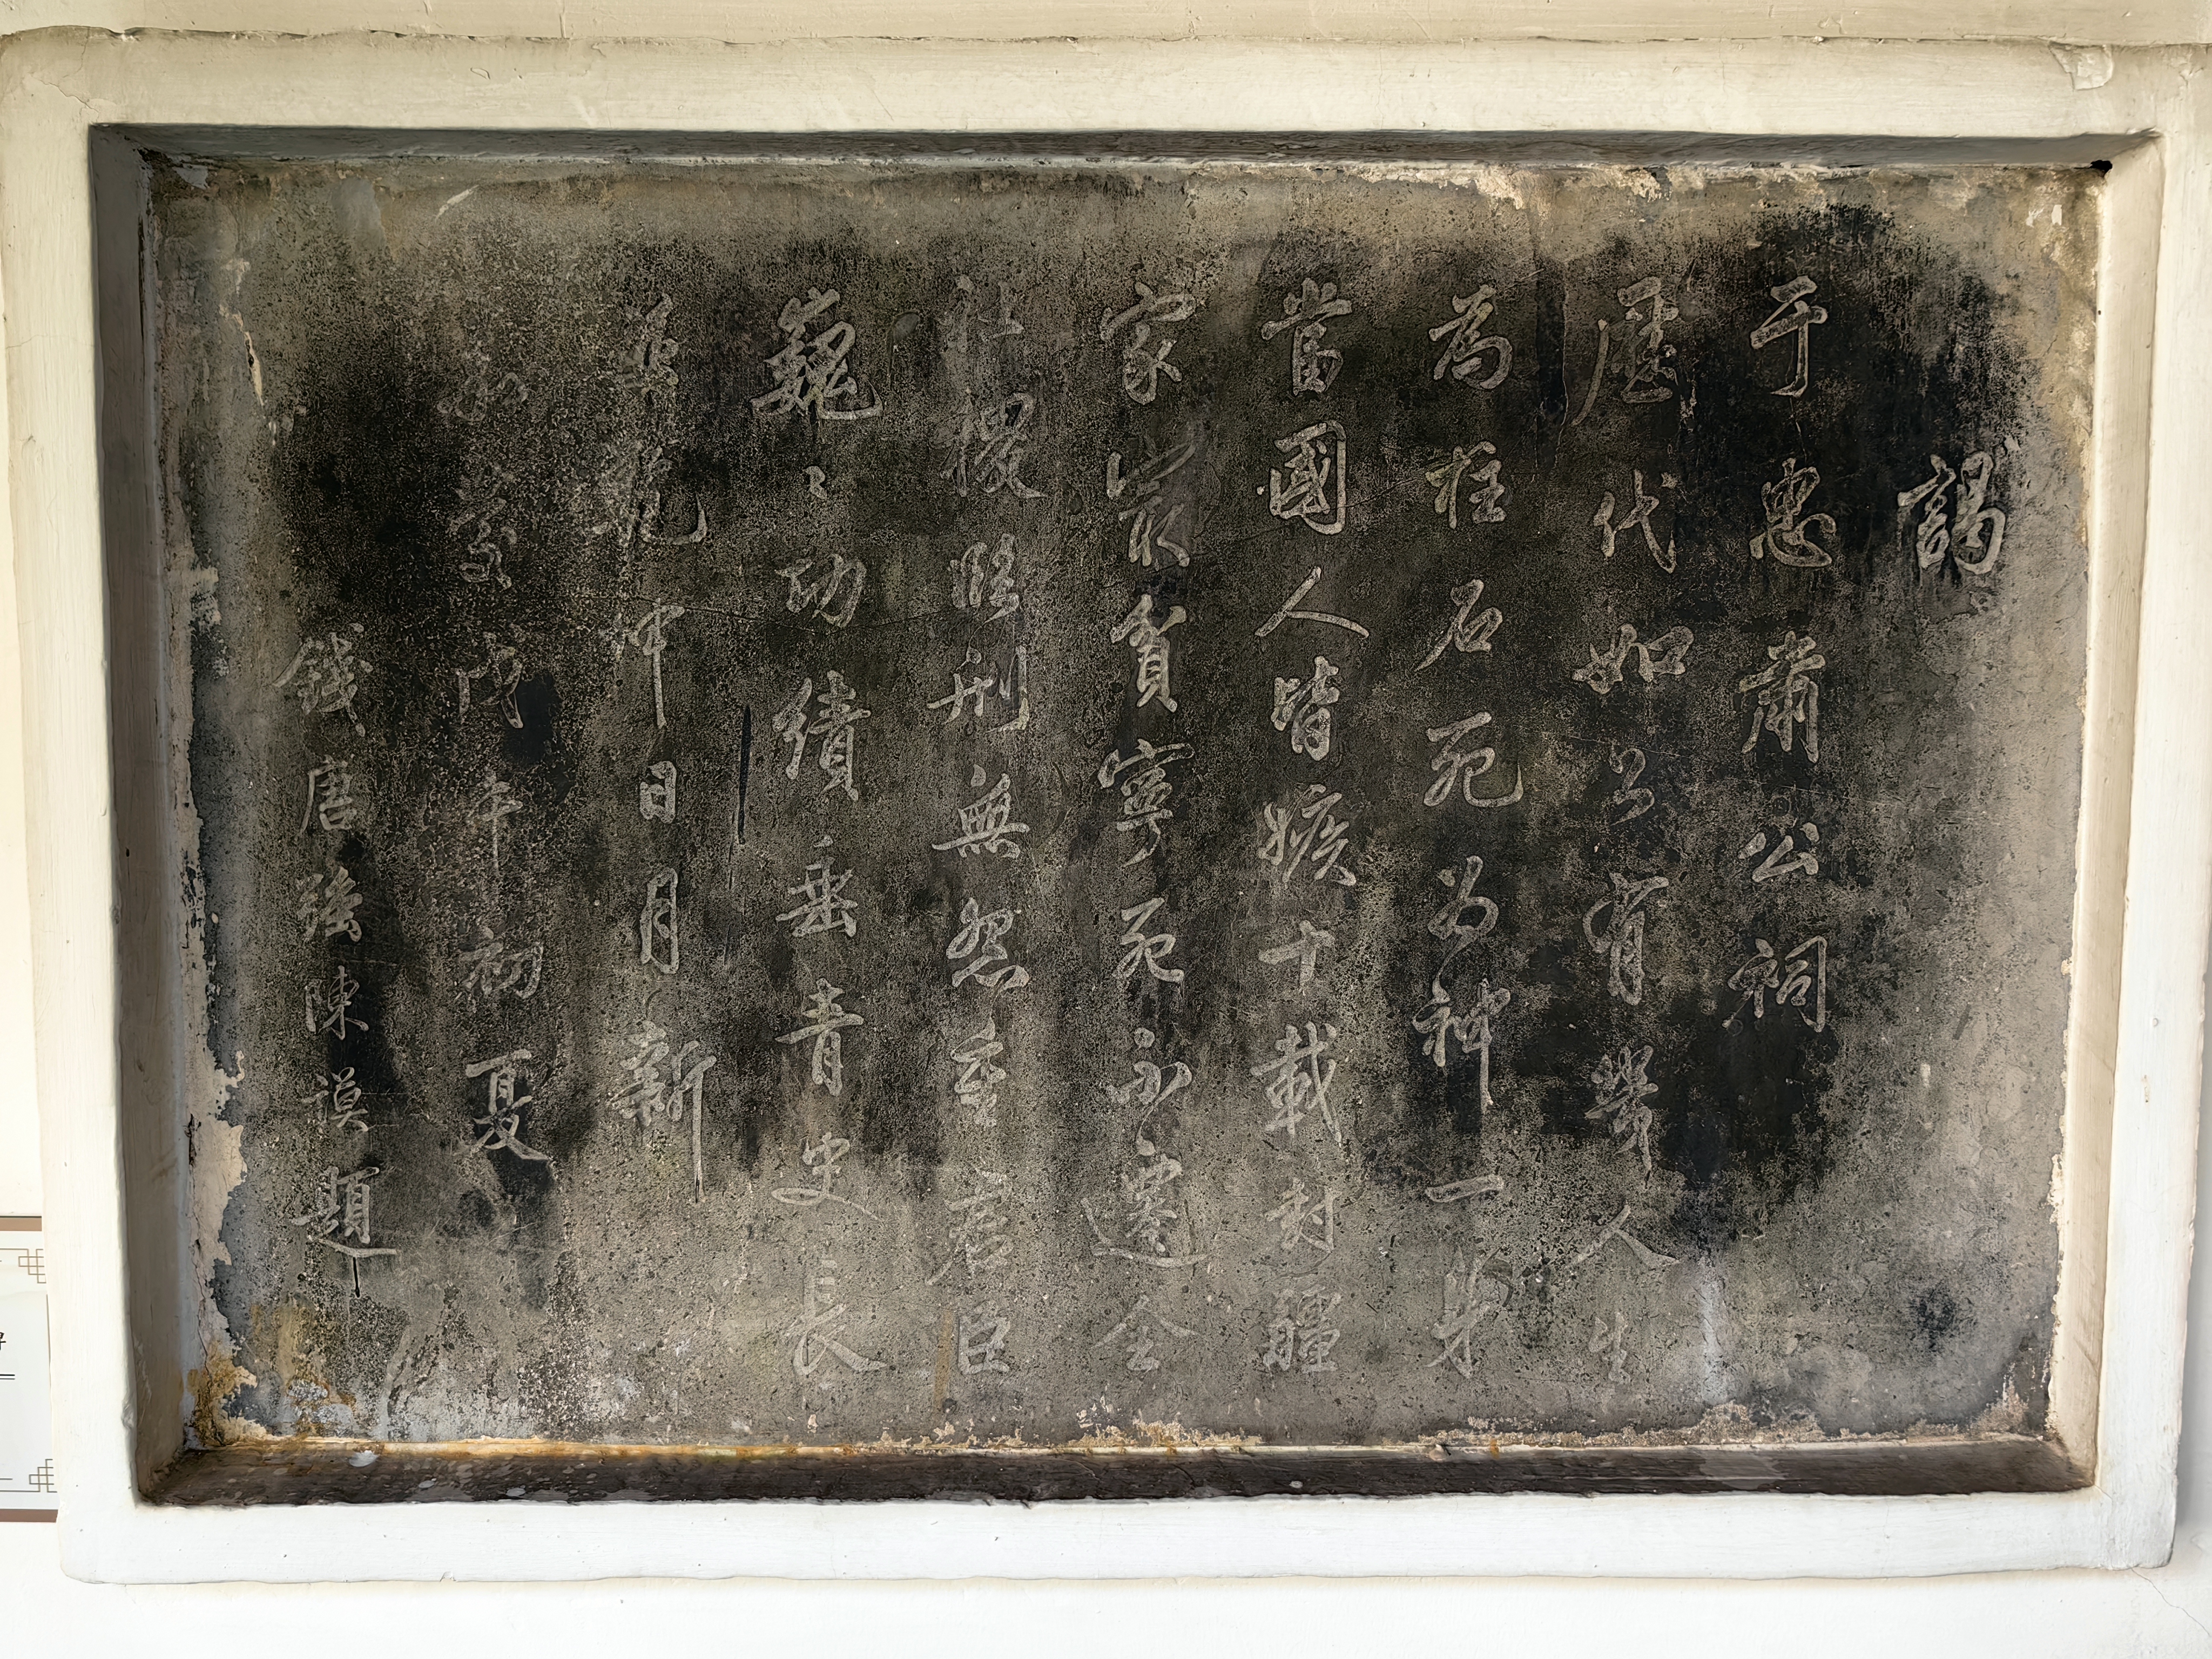 謁
于忠肅公祠
歷代如公有幾人生
為柱石死為神一身
當國人皆嫉十載封疆
家最貧寧死不遷全
社稷臨刑無怨重君臣
巍〻功績垂青史長
乾坤日月新
嘉慶戊午初夏
錢唐陳謨題